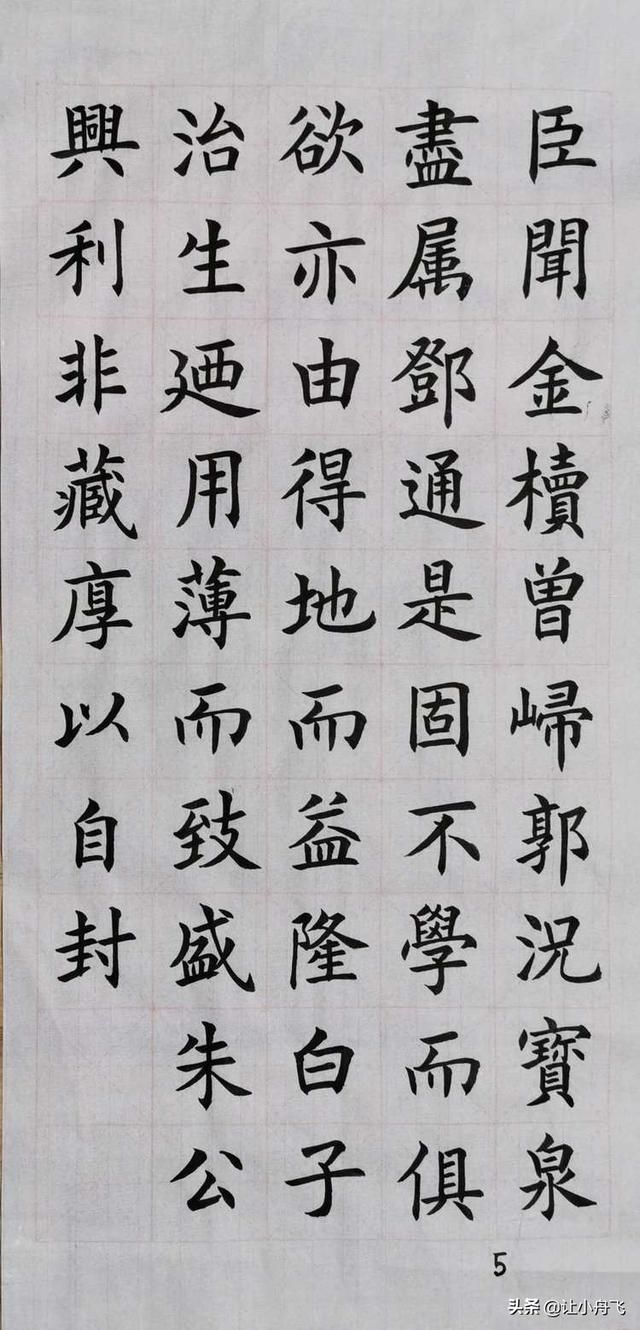 臣聞金櫝曾㱕郭況寳泉
盡属鄧通是固不學而俱
欲亦由得地而益隆白子
治生廼用薄而致盛朱公
興利非藏厚以自封
5
头条 @让小舟飞